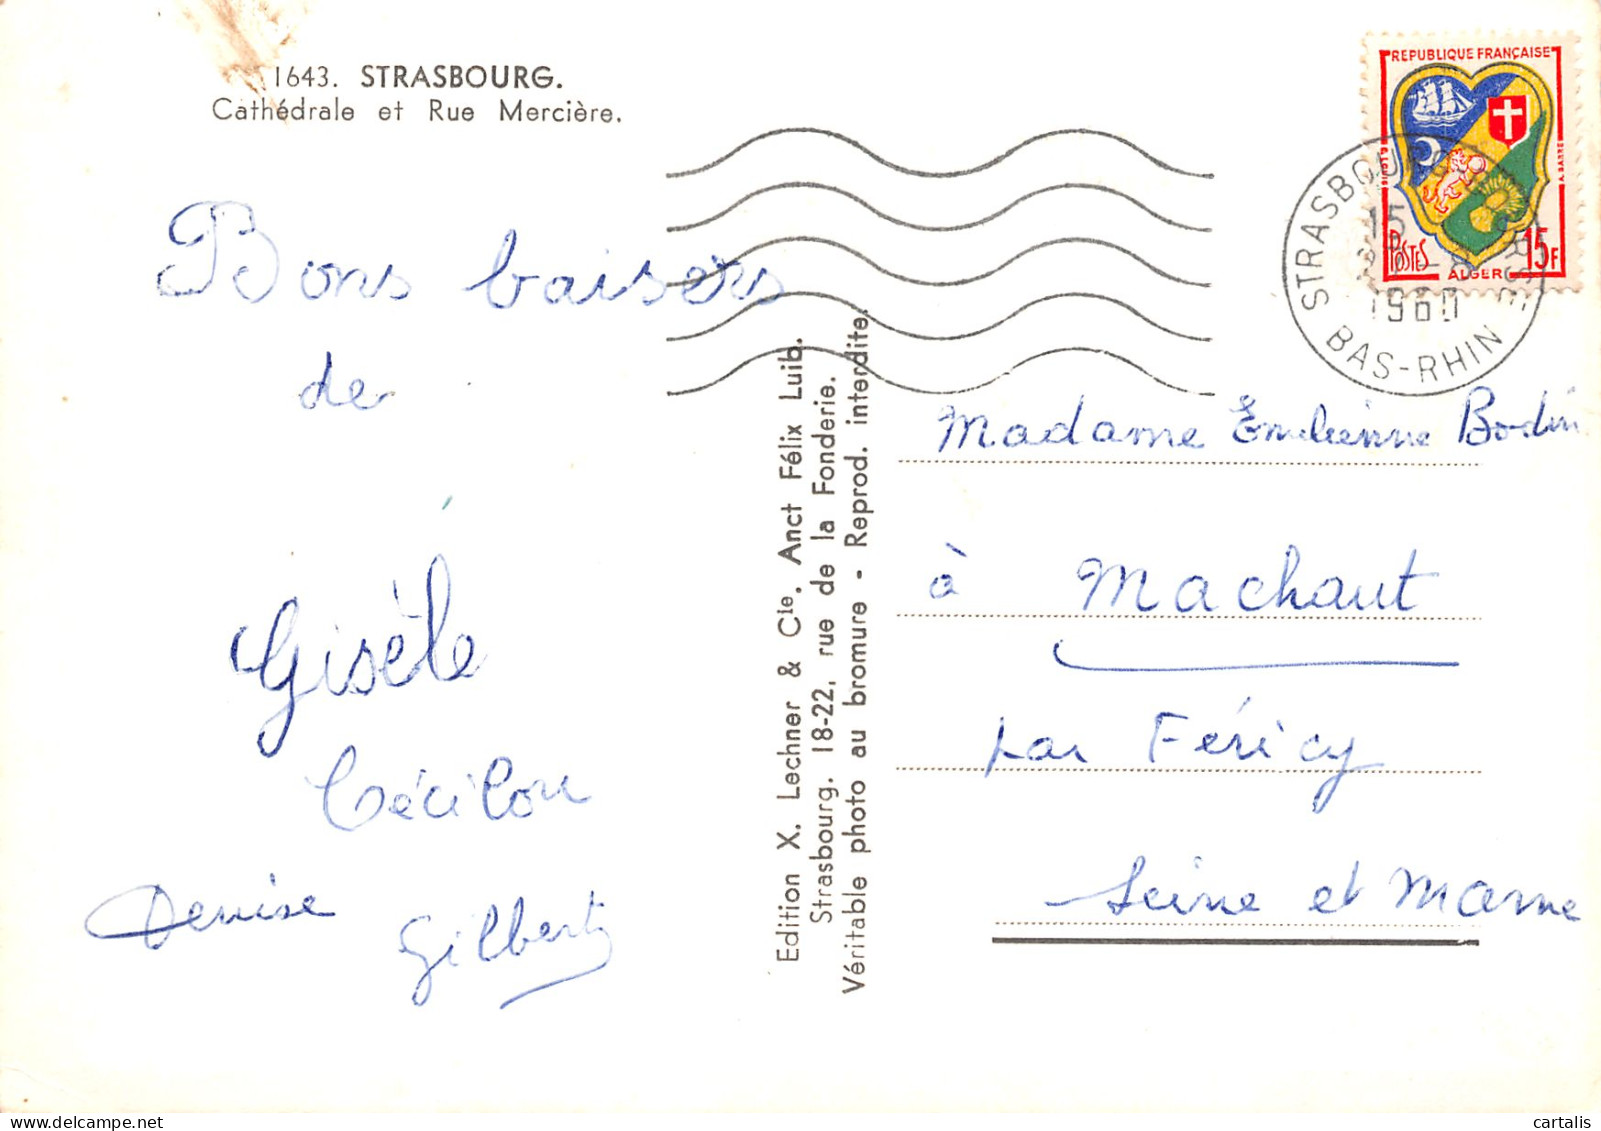 1643. STRASBOURG.
Cathédrale et Rue Mercière.
Bons baisers
de
Gisèle
Cécilou
Denise
Gilbert
Edition X. Lechner & Cie, Anct Félix Luib.
Strasbourg. 18-22, rue de la Fonderie.
Véritable photo au bromure - Reprod. interdite.
REPUBLIQUE FRANÇAISE
POSTES
ALGER
15F
STRASBOURG BOURSE
15
1960
BAS-RHIN
Madame Emilienne Bodin
à Machaut
par Féricy
Seine et Marne
cartalis